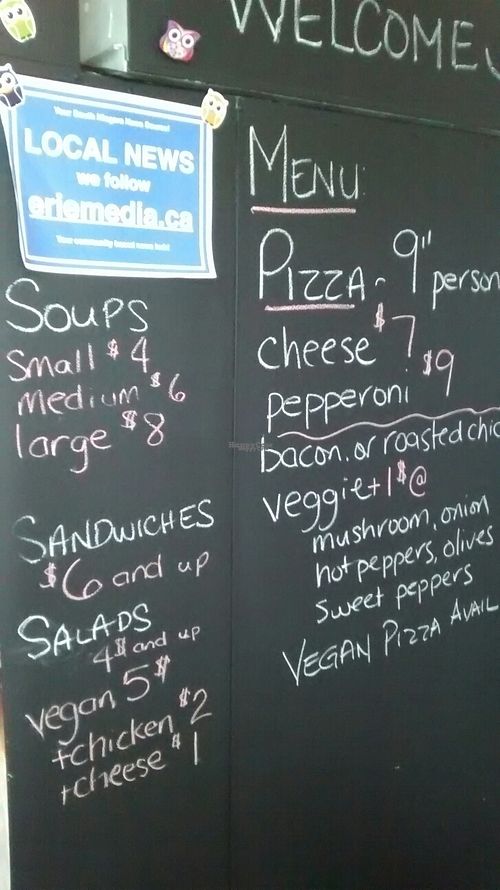 WELCOME
Your South Niagara News Source!
LOCAL NEWS
we follow
eriemedia.ca
Your community based news hub!
SOUPS
small $4
medium $6
large $8
SANDWICHES
$6 and up
SALADS
4$ and up
vegan 5$
+chicken $2
+cheese $1
MENU:
PIZZA - 9" person
cheese $7
pepperoni $9
bacon, or roasted chic
veggie +1$@
mushroom, onion
hot peppers, olives
sweet peppers
VEGAN PIZZA AVAIL